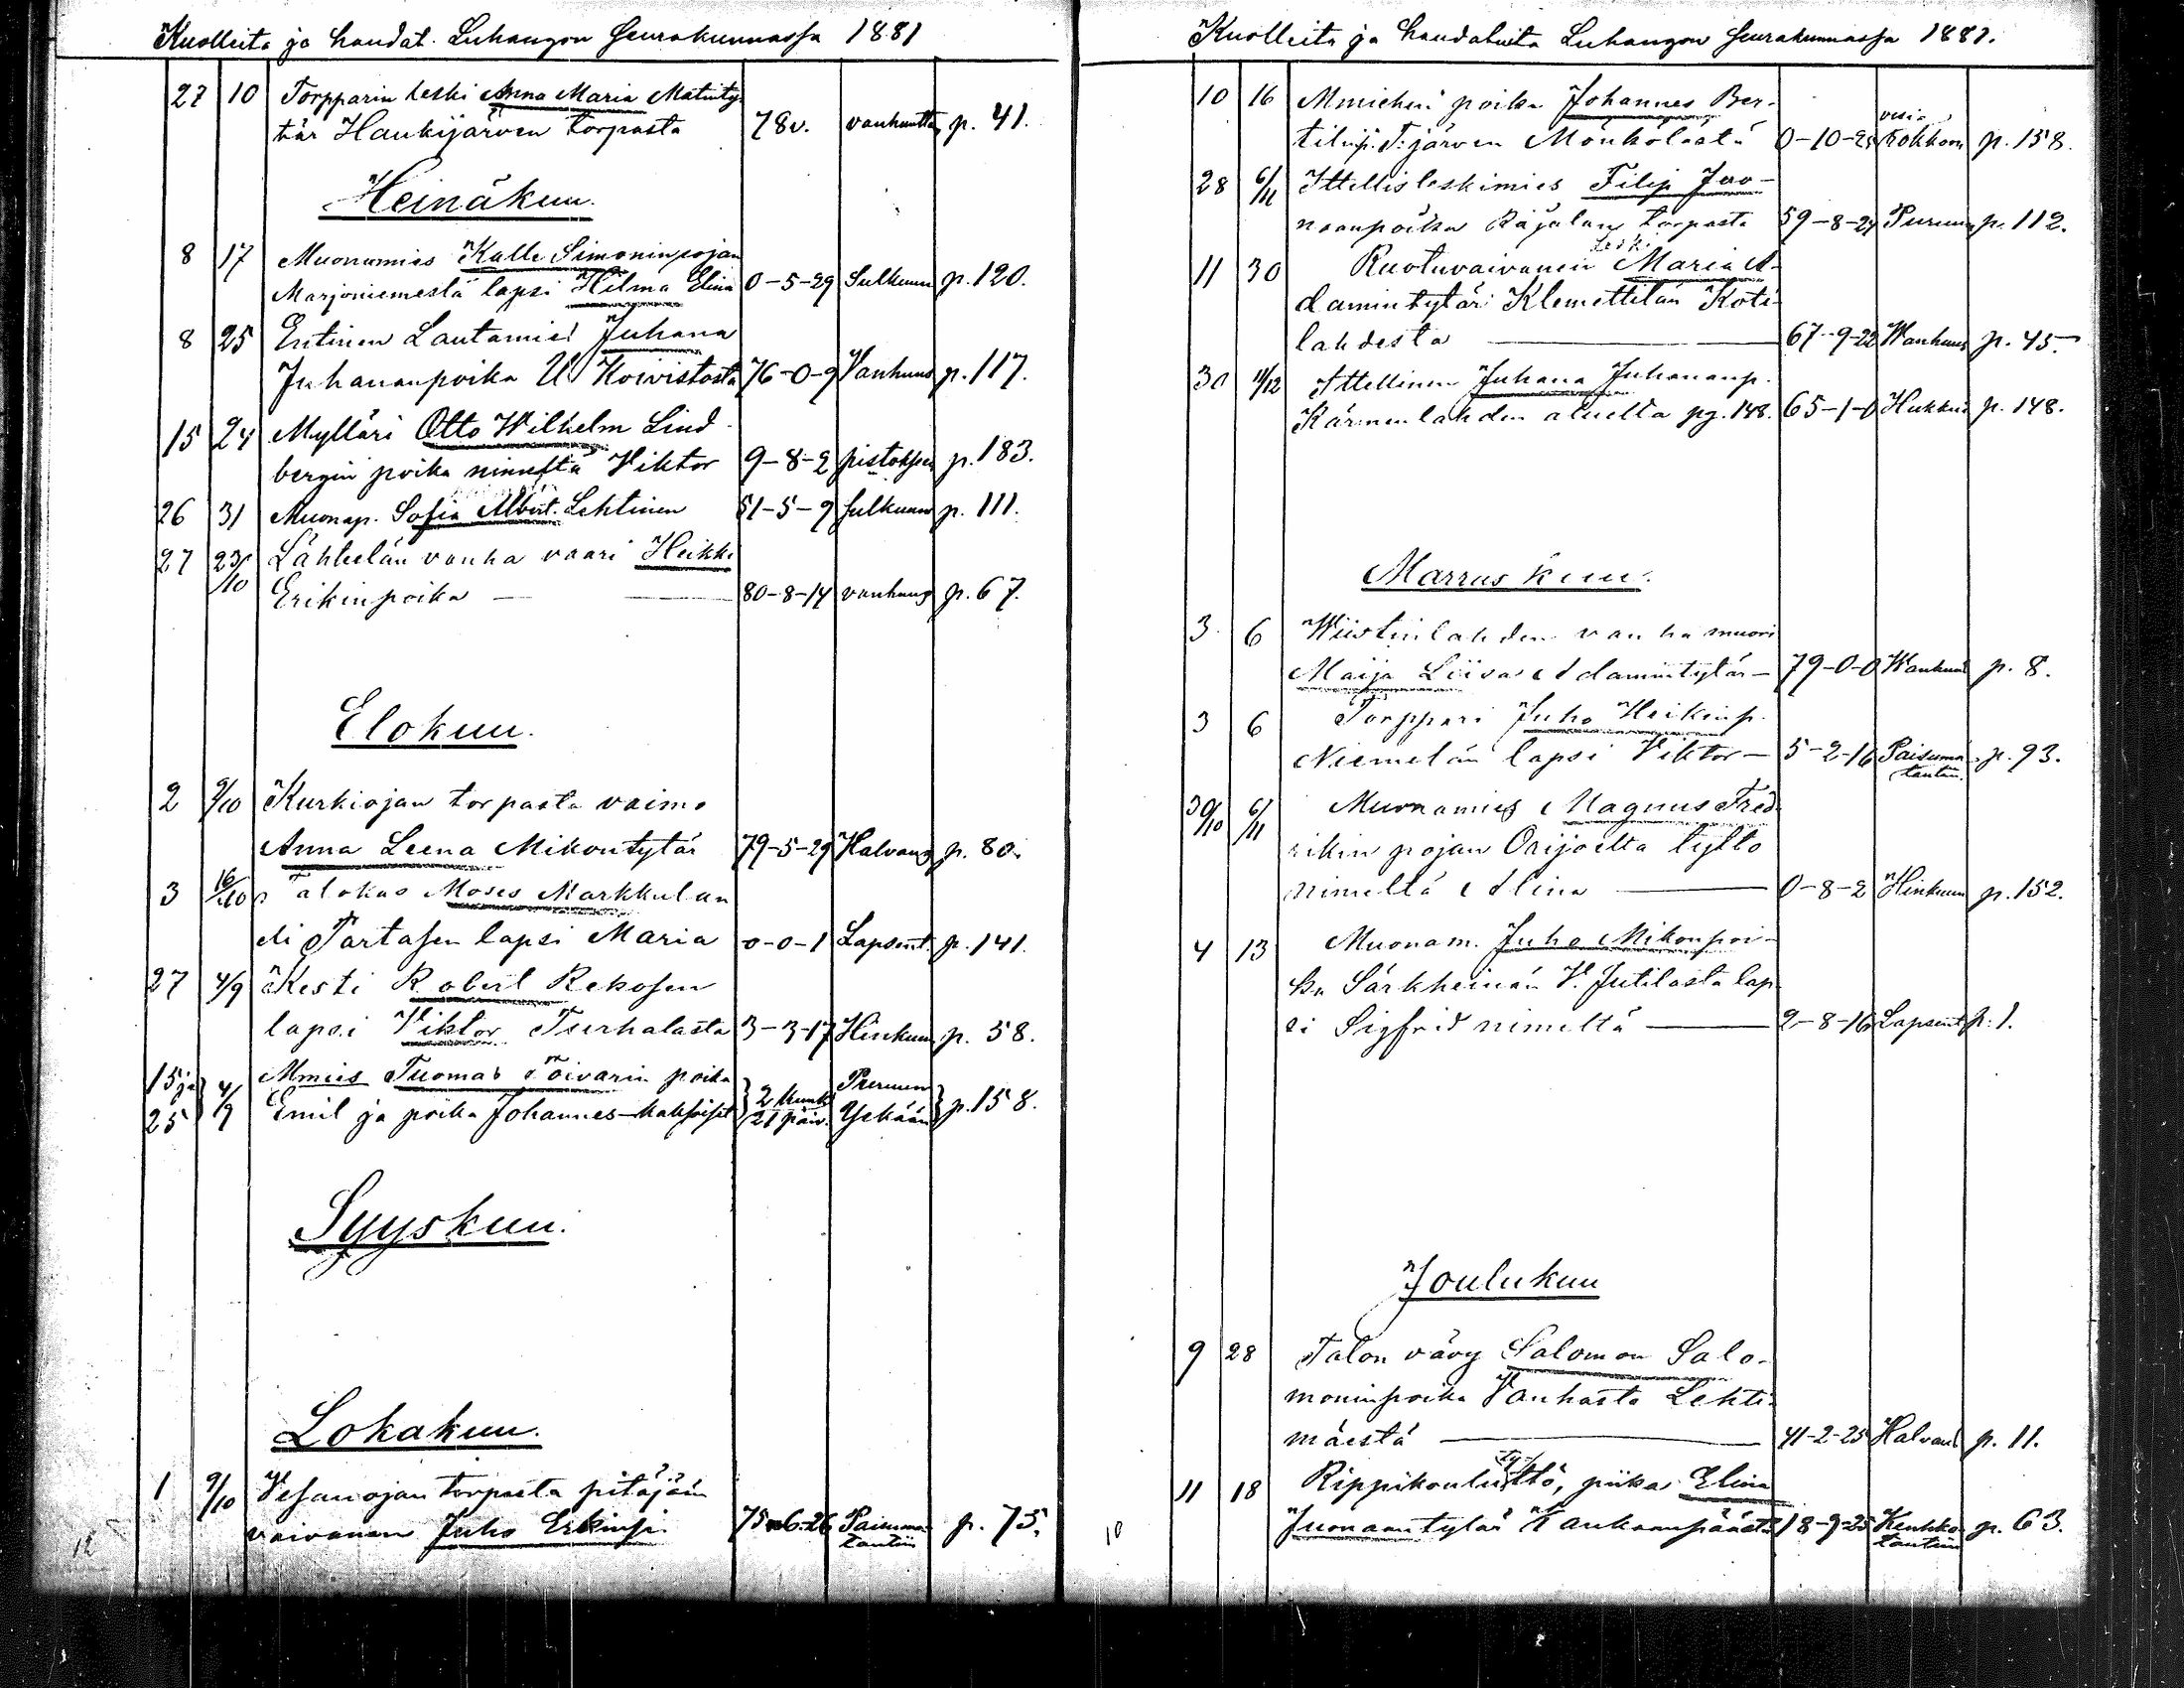 Kuolleita ja haudat. Luhangon seurakunnassa 1881
27 10 Torpparin leski Anna Maria Matinty-
tär Haukijärven torpasta 78 v. vanhuutta p. 41.
Heinäkuu.
8 17 Muonamies Kalle Simoninpojan
Marjoniemestä lapsi Hilma Elina 0-5-29 Sulkuun p. 120.
8 25 Entinen Lautamies Juhana
Juhananpoika U Koivistosta 76-0-9 Vanhuus p. 117.
15 24 Mylläri Otto Wilhelm Lind-
bergin poika nimeltä Viktor 9-8-2 pistoksen p. 183.
26 31 Muonap. Sofia Albert. Lehtinen 51-5-9 sulkuun p. 111.
27 23/10 Lähteelän vanha vaari Heikki
Erikinpoika 80-8-14 vanhuus p. 67.
Elokuu.
2 9/10 Kurkiojan torpasta vaimo
Anna Leena Mikontytär 79-5-29 Halvaus p. 80.
3 16/10 Talokas Moses Markkulan
eli Tartasen lapsi Maria 0-0-1 Lapsent. p. 141.
27 4/9 Kesti Robert Rekosen
lapsi Viktor Tserhalasta 3-3-17 Hinkuun p. 58.
15 ja Mmies Tuomas Toivarin poika Puruun
25 4/9 Emil ja poika Johannes-kaksoiset 2 kuuk. 21 päiv. Yskään p. 158.
Syyskuu.
Lokakuu.
1 9/10 Vesanojan torpasta pitäjän
vaivanen Juho Erkinp. 75-6-26 Paisuma p. 75.
tautiin
12
Kuolleita ja haudatuita Luhangon seurakunnassa 1881.
10 16 Mmiehen poika Johannes Ber-
tilinp. T:järven Mönkölästä 0-10-25 vesirokkoon p. 158.
28 6/11 Ittellisleskimies Filip Joo-
naanpoika Rajalan torpasta 59-8-24 Puruun p. 112.
leski
11 30 Ruotuvaivanen Maria A-
damintytär Klemettilän Koti-
lahdesta 67-9-22 Wanhuus p. 45.
30 11/12 Ittellinen Juhana Juhananp.
Kärmenlahden alueelta pg. 148. 65-1-0 Hukkui p. 148.
Marraskuu.
3 6 Wiistinlahden vanha muori
Maija Liisa Adamintytär 79-0-0 Wanhuus p. 8.
3 6 Torppari Juho Heikinp.
Niemelän lapsi Viktor 5-2-16 Paisuma p. 93.
tautiin.
30/10 6/11 Muonamies Magnus Fred-
rikin pojan Orijoelta tyttö
nimeltä Alina 0-8-2 Hinkuun p. 152.
4 13 Muonam. Juho Mikonpoi-
ka Särkheinän V. Jutilasta lap-
si Sigfrid nimeltä 2-8-16 Lapsent p. 1.
Joulukuu
9 28 Talon vävy Salomon Salo-
moninpoika Vanhasta Lehti-
mäestä 41-2-25 Halvaus p. 11.
11 18 Rippikoulutyttö, piika Elina
Juonaantytär Kaukaanpäästä 18-9-25 Keuhko p. 63.
tautiin
10